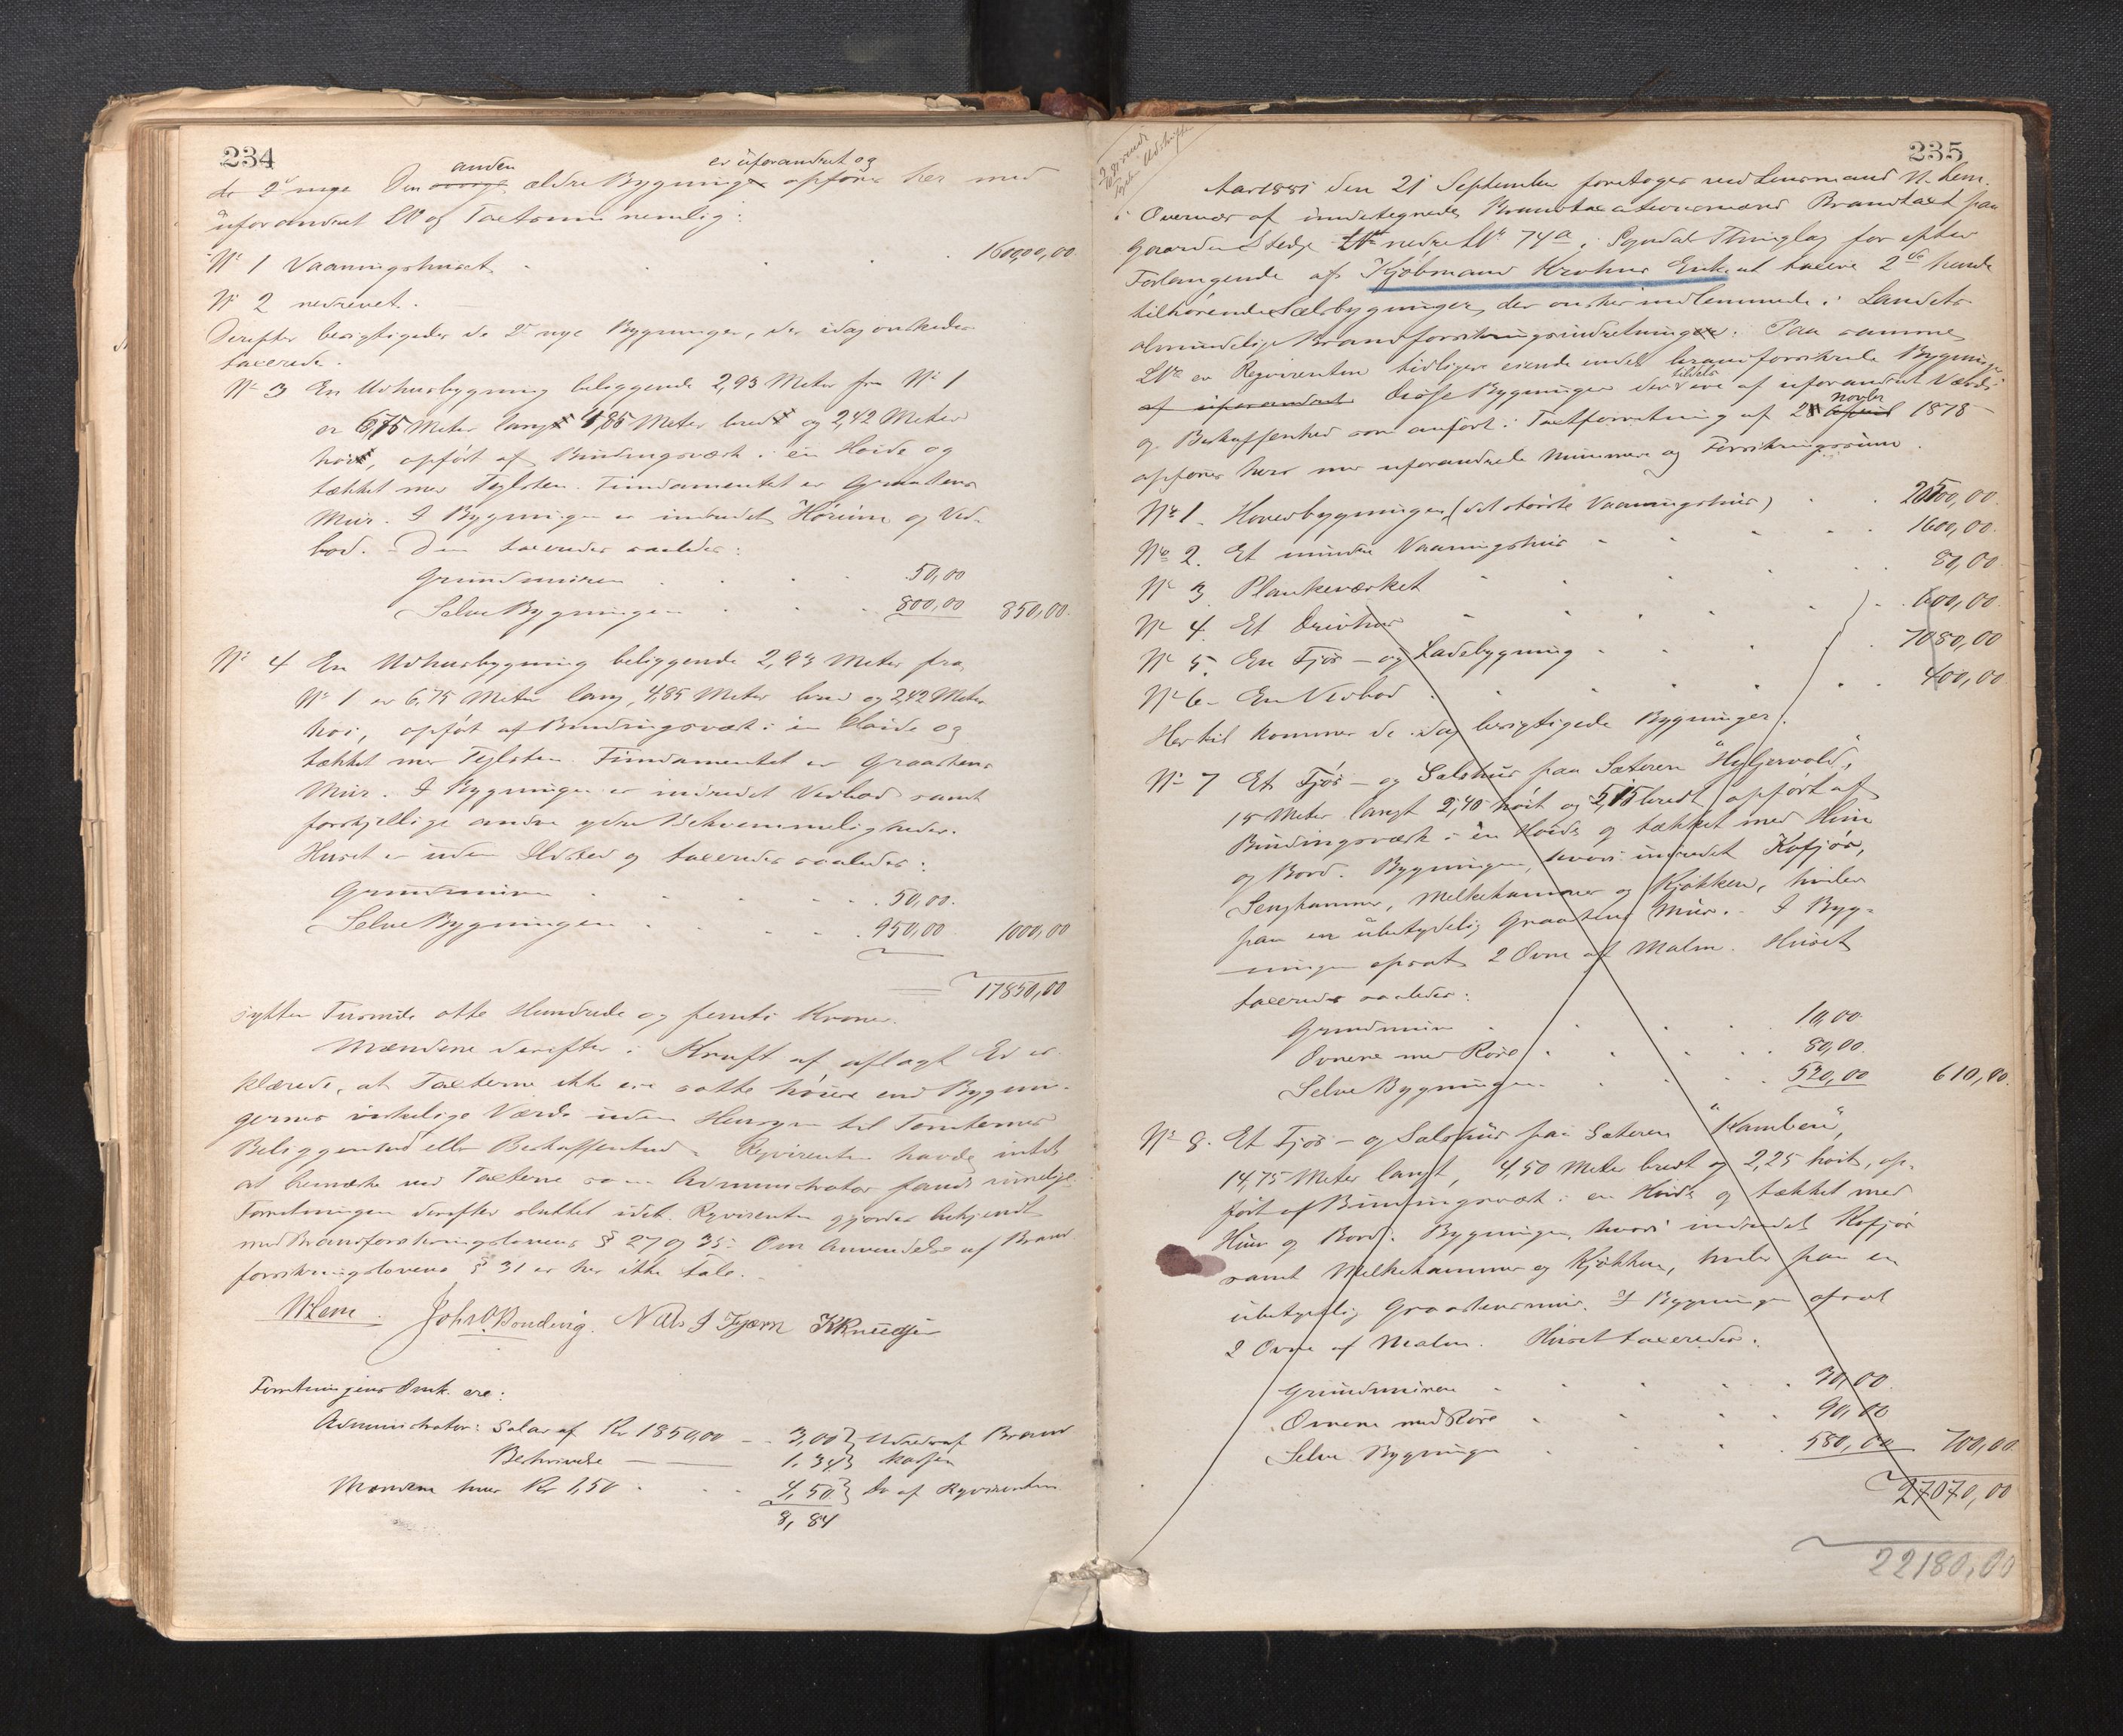 234
anden er uforandret og
de 2de nye Den øvrige ældre Bygning opføres her med
uforandret LN og Taxtsum nemlig:
No 1 Vaaningshuset . . . . 16000,00
No 2 nedrevet.
Derefter besigtigedes de 2de nye Bygninger, der idag ønskedes
taxerede.
No 3 En Udhusbygning beliggende 2,93 Meter fra No 1
er 6,75 Meter lang 4,85 Meter bred og 2,42 Meter
høi, opført af Bindingsværk i en Høide og
tækket med Teglsten. Fundamentet er Graastens
Mur. I Bygningen er indredet Hørum og Ved-
bod. Den taxeredes saaledes:
Grundmuren . . . 50,00
Selve Bygningen . . . 800,00 850,00.
No 4 En Udhusbygning beliggende 2,93 Meter fra
No 1 er 6,75 Meter lang, 4,85 Meter bred og 2,42 Meter
høi, opført af Bindingsværk i en Høide og
tækket med Teglsten. Fundamentet er Graastens
Mur. I Bygningen er indredet Vedbod samt
forskjellige andre ydre Bekvemmeligheder.
Huset er uden Ildsted og taxeredes saaledes:
Grundmuren . . . . 50,00.
Selve Bygningen . . . . 950,00 1000,00
17850,00
sytten Tusinde otte Hundrede og femti Kroner.
Mændene derefter i Kraft af aflagt Ed er-
klærede, at Taxterne ikke ere satte høiere end Bygnin-
gernes virkelige Værdi uden Hensyn til Tomternes
Beliggenhed eller Beskaffenhed. Rqvirenten havde intet
at bemærke ved Taxterne som Administrator fandt rimelige.
Forretningen derefter sluttet idet Rqvirenten gjordes bekjendt
med Brandforsikringslovens § 27 og 35. Om Anvendelse af Brand-
forsikringslovens § 31 er her ikke Tale.
NLem. John O. Bondevig. Nils J Fjærn KKnudsen
Forretningens Omk. ere:
Administrator: Salær af Kr 1850,00 - 3,00 } Udredes af Brand
Beskrivelse — 1,34 } Kassen
Mændene hver Kr 1,50 . . . 4,50 } Do af Rqvirenten
8,84
235
Aar 1881 den 21 September foretoges ved Lensmand N. Lem
i Overvær af undertegnede Brandtaxationsmænd Brandtaxt paa
Gaarden Stedje nedre LNr 74a i Sogndal Thinglag for efter
Forlangende af Kjøbmand Krohns Enke at taxere 2de hende
tilhørende Sælsbygninger, der ønskes indlemmede i Landets
almindelige Brandforsikringsindretning. Paa samme
LNr er Rqvirenten tidligere eiende endel brandforsikrede Bygninger
af uforandret Disse Bygninger der tildels ere af uforandret Værdi
og Beskaffenhed som anført i Taxtforretning af 28 Novbr 1878
opføres her med uforandrede Nummere og Forsikringssum.
No 1. Hovedbygningen (det største Vaaningshus) . .
No 2. Et mindre Vaaningshus . . . . 1600,00.
No 3 Plankeværket . . . . 80,00.
No 4. Et Drivhus . . . . 600,00.
No 5. En Fjøs- og Ladebygning . . . . 7080,00
No 6. En Vedbod . . . . 400,00
Hertil kommer de idag besigtigede Bygninger:
No 7 Et Fjøs- og Selshus paa Sæteren "Hyljervold",
15 Meter langt 2,40 høit og 5,15 bredt opført af
Bindingsværk i en Høide og tækket med Hun
og Bord. Bygningen, hvori indredet Kofjøs,
Sengkammer, Melkekammer og Kjøkken, hviler
paa en ubetydelig Graastens Mur. I Byg-
ningen opsat 2 Ovne af Malm. Huset
taxeredes saaledes:
Grundmuren . . . . 10,00.
Ovnene med Rør . . . . 80,00.
Selve Bygningen . . . . 520,00 610,00.
No 8. Et Fjøs- og Selshus paa Sæteren "Kamben",
14,75 Meter langt, 4,50 Meter bredt og 2,25 høit, op-
ført af Bindingsværk i en Høide og tækket med
Hun og Bord. Bygningen, hvori indredet Kofjøs
samt Melkekammer og Kjøkken, hviler paa en
ubetydelig Graastensmur. I Bygningen opsat
2 Ovne af Malm. Huset taxeredes:
Grundmuren . . . . 30,00.
Ovnene med Rør . . . . 90,00
Selve Bygningen . . . . 580,00 700,00
27070,00
22180,00